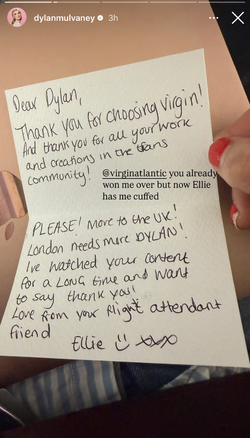 dylanmulvaney 3h
Dear Dylan,
Thank you for choosing Virgin!
And thank you for all your work
and creations in the trans
community!
@virginatlantic you already
won me over but now Ellie
has me cuffed
PLEASE! More to the UK!
London needs more DYLAN!
I've watched your content
for a LONG time and want
to say thank you!
Love from your flight attendant
friend
Ellie